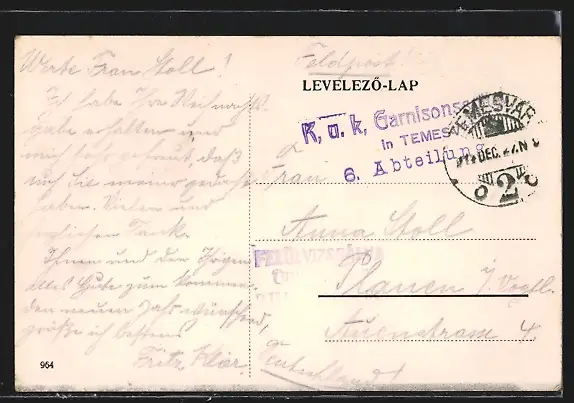 Werte Frau Stoll!
Ich habe Ihre Weihnachts-
gabe erhalten und
mich sehr gefreut, daß
auch Sie meiner gedacht
haben. Vielen und
herzlichen Dank.
Ihnen und den Ihrigen
alles Gute zum kommen-
den neuen Jahr wünschend,
grüße ich bestens
Fritz
964
Feldpost!
LEVELEZŐ-LAP
K. u. k. Garnisons
in TEMESV
6. Abteilung
TEMESVÁR
DEC. 27. N
2
Frau
Anna Stoll
FELÜLVIZSGÁLVA
Plauen i/Vogtl.
Auenstrasse 4.
Deutschland!